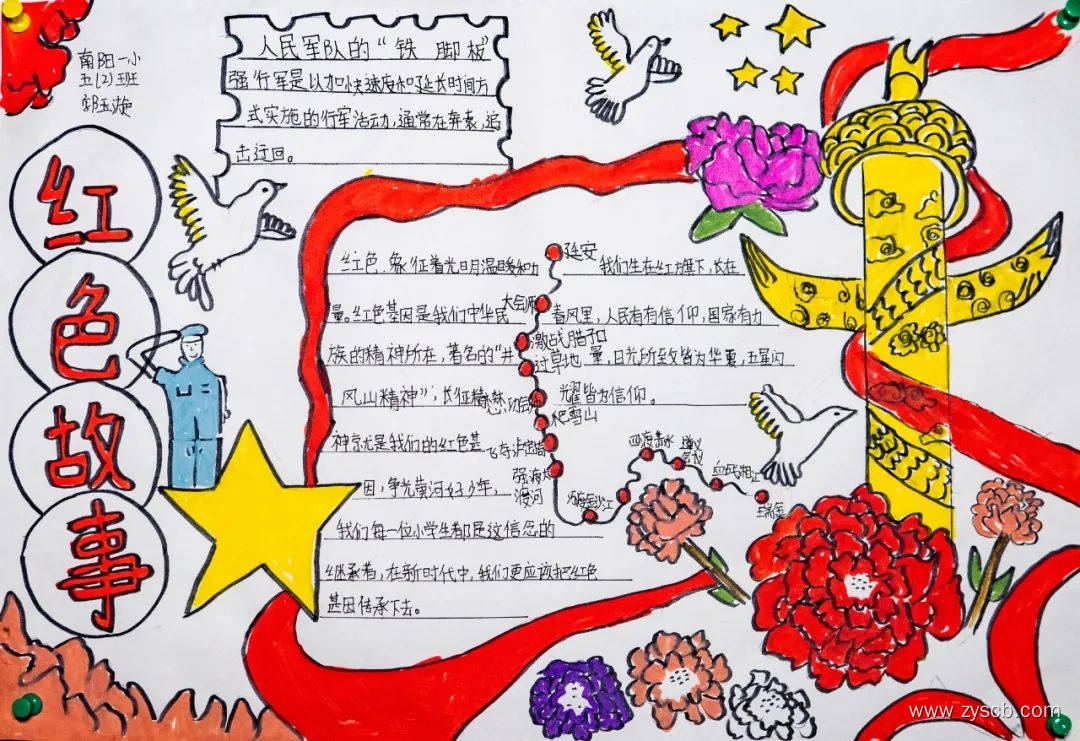 南阳一小
五(2)班
红色故事
人民军队的“铁 脚板”
强行军是以加快速度和延长时间方
式实施的行军活动,通常在奔袭,追
击迂回。
红色、象征着光日月温暖和力
量。红色基因是我们中华民
族的精神所在,著名的“井
风山精神”,长征精
神京尤是我们的红色基
因,争光荣河好少年,
我们每一位小学生都是这信念的
继承者,在新时代中,我们更应该把红色
基因传承下去。
延安
大会师
激战腊子口
过草地
爬雪山
飞夺泸定桥
强渡大
渡河
金沙江
四渡赤水
遵义
会议
血战湘江
瑞金
我们生在红旗下,长在
春风里,人民有有信仰,国家有力
量,目光所至皆为华夏,五星闪
耀皆为信仰。
www.zyscb.com